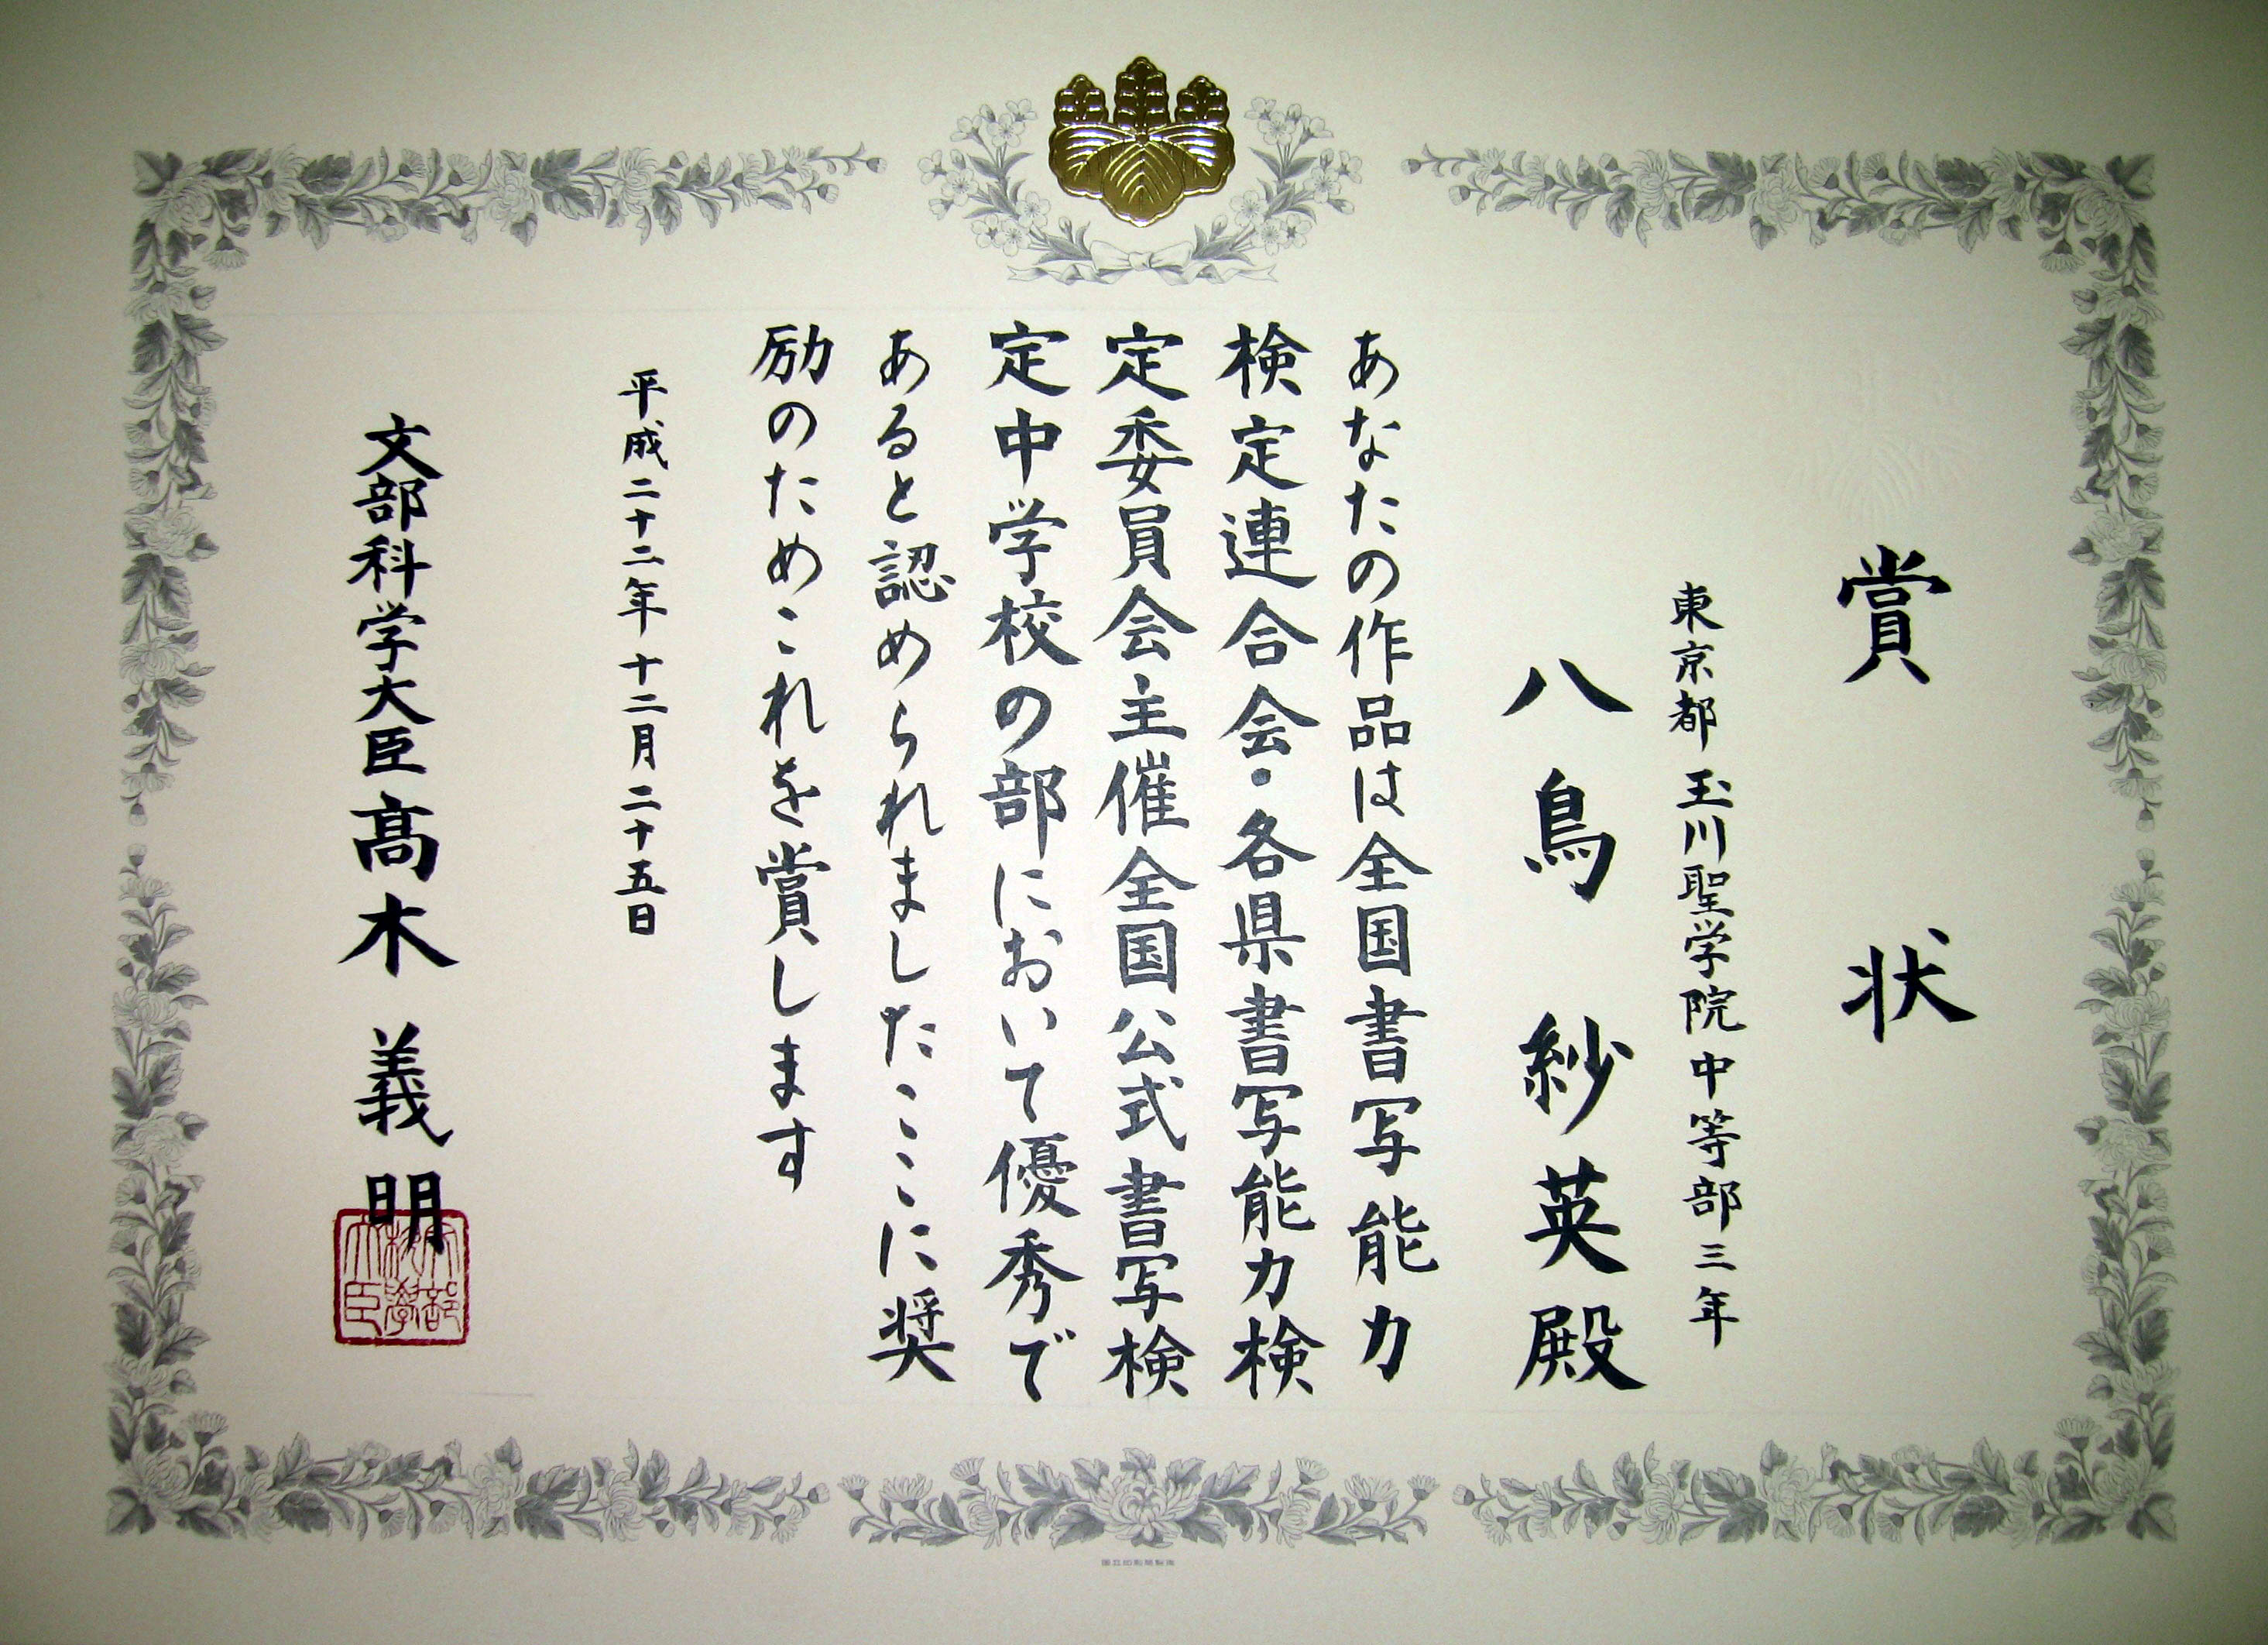 賞状
東京都 玉川聖学院中等部三年
八鳥 紗英殿
あなたの作品は全国書写能力
検定連合会・各県書写能力検
定委員会主催全国公式書写検
定中学校の部において優秀で
あると認められましたここに奨
励のためこれを賞します
平成二十二年十二月二十五日
文部科学大臣髙木義明
文部科學大臣
国立印刷局製造